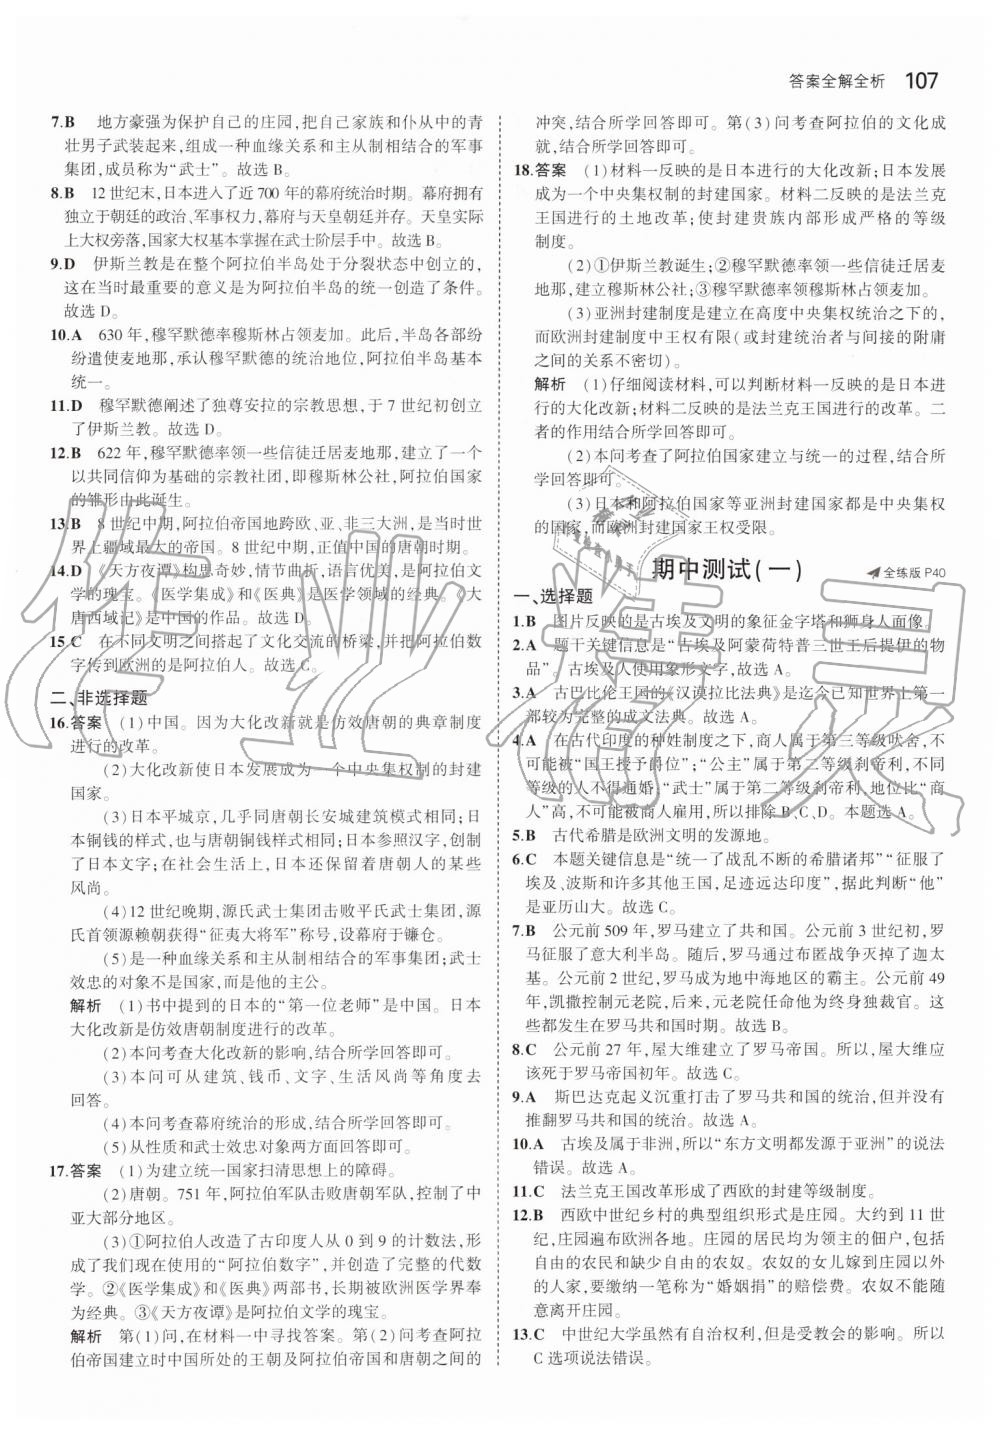 答案全解全析 107
7.B 地方豪强为保护自己的庄园,把自己家族和仆从中的青
壮男子武装起来,组成一种血缘关系和主从制相结合的军事
集团,成员称为“武士”。故选B。
8.B 12世纪末,日本进入了近700年的幕府统治时期。幕府拥有
独立于朝廷的政治、军事权力,幕府与天皇朝廷并存。天皇实际
上大权旁落,国家大权基本掌握在武士阶层手中。故选B。
9.D 伊斯兰教是在整个阿拉伯半岛处于分裂状态中创立的,
这在当时最重要的意义是为阿拉伯半岛的统一创造了条件。
故选D。
10.A 630年,穆罕默德率穆斯林占领麦加。此后,半岛各部纷
纷遣使麦地那,承认穆罕默德的统治地位,阿拉伯半岛基本
统一。
11.D 穆罕默德阐述了独尊安拉的宗教思想,于7世纪初创立
了伊斯兰教。故选D。
12.B 622年,穆罕默德率领一些信徒迁居麦地那,建立了一个
以共同信仰为基础的宗教社团,即穆斯林公社,阿拉伯国家
的雏形由此诞生。
13.B 8世纪中期,阿拉伯帝国地跨欧、亚、非三大洲,是当时世
界上疆域最大的帝国。8世纪中期,正值中国的唐朝时期。
14.D 《天方夜谭》构思奇妙,情节曲折,语言优美,是阿拉伯文
学的瑰宝。《医学集成》和《医典》是医学领域的经典。《大
唐西域记》是中国的作品。故选D。
15.C 在不同文明之间搭起了文化交流的桥梁,并把阿拉伯数
字传到欧洲的是阿拉伯人。故选C。
二、非选择题
16.答案 (1)中国。因为大化改新就是仿效唐朝的典章制度
进行的改革。
(2)大化改新使日本发展成为一个中央集权制的封建
国家。
(3)日本平城京,几乎同唐朝长安城建筑模式相同;日
本铜钱的样式,也与唐朝铜钱样式相同;日本参照汉字,创
了日本文字;在社会生活上,日本还保留着唐朝人的某些
风尚。
(4)12世纪晚期,源氏武士集团击败平氏武士集团,源
氏首领源赖朝获得“征夷大将军”称号,设幕府于镰仓。
(5)是一种血缘关系和主从制相结合的军事集团;武士
效忠的对象不是国家,而是他的主公。
解析 (1)书中提到的日本的“第一位老师”是中国。日本
大化改新是仿效唐朝制度进行的改革。
(2)本问考查大化改新的影响,结合所学回答即可。
(3)本问可从建筑、钱币、文字、生活风尚等角度去
回答。
(4)本问考查幕府统治的形成,结合所学回答即可。
(5)从性质和武士效忠对象两方面回答即可。
17.答案 (1)为建立统一国家扫清思想上的障碍。
(2)唐朝。751年,阿拉伯军队击败唐朝军队,控制了中
亚大部分地区。
(3)①阿拉伯人改造了古印度人从0到9的计数法,形
成了我们现在使用的“阿拉伯数字”,并创造了完整的代数
学。②《医学集成》和《医典》两部书,长期被欧洲医学界奉
为经典。③《天方夜谭》是阿拉伯文学的瑰宝。
解析 第(1)问,在材料一中寻找答案。第(2)问考查阿拉
伯帝国建立时中国所处的王朝及阿拉伯帝国与唐朝之间的
冲突,结合所学回答即可。第(3)问考查阿拉伯的文化成
就,结合所学回答即可。
18.答案 (1)材料一反映的是日本进行的大化改新;日本发展
成为一个中央集权制的封建国家。材料二反映的是法兰克
王国进行的土地改革;使封建贵族内部形成严格的等级
制度。
(2)①伊斯兰教诞生;②穆罕默德率领一些信徒迁居麦
地那,建立穆斯林公社;③穆罕默德率领穆斯林占领麦加。
(3)亚洲封建制度是建立在高度中央集权统治之下的,
而欧洲封建制度中王权有限(或封建统治者与间接的附庸
之间的关系不密切)。
解析 (1)仔细阅读材料,可以判断材料一反映的是日本进
行的大化改新;材料二反映的是法兰克王国进行的改革。二
者的作用结合所学回答即可。
(2)本问考查了阿拉伯国家建立与统一的过程,结合所
学回答即可。
(3)日本和阿拉伯国家等亚洲封建国家都是中央集权
的国家,而欧洲封建国家王权受限。
期中测试(一) 全练版P40
一、选择题
1.B 图片反映的是古埃及文明的象征金字塔和狮身人面像。
2.A 题干关键信息是“古埃及阿蒙荷特普三世王后提伊的物
品”。古埃及人使用象形文字,故选A。
3.A 古巴比伦王国的《汉谟拉比法典》是迄今已知世界上第一
部较为完整的成文法典。故选A。
4.A 在古代印度的种姓制度之下,商人属于第三等级吠舍,不
可能被“国王授予爵位”;“公主”属于第二等级刹帝利,不同
等级的人不得通婚;“武士”属于第二等级刹帝利,地位比“商
人”高,不可能被商人雇用,所以排除B、C、D。本题选A。
5.B 古代希腊是欧洲文明的发源地。
6.C 本题关键信息是“统一了战乱不断的希腊诸邦”“征服了
埃及、波斯和许多其他王国,足迹远达印度”,据此判断“他”
是亚历山大。故选C。
7.B 公元前509年,罗马建立了共和国。公元前3世纪初,罗
马征服了意大利半岛。随后,罗马通过布匿战争灭掉了迦太
基。公元前2世纪,罗马成为地中海地区的霸主。公元前49
年,凯撒控制元老院,后来,元老院任命他为终身独裁官。这
些都发生在罗马共和国时期。故选B。
8.C 公元前27年,屋大维建立了罗马帝国。所以,屋大维应
该死于罗马帝国初年。故选C。
9.A 斯巴达克起义沉重打击了罗马共和国的统治,但并没有
推翻罗马共和国的统治。故选A。
10.A 古埃及属于非洲,所以“东方文明都发源于亚洲”的说法
错误。故选A。
11.C 法兰克王国改革形成了西欧的封建等级制度。
12.B 西欧中世纪乡村的典型组织形式是庄园。大约到11世
纪,庄园遍布欧洲各地。庄园的居民均为领主的佃户,包括
自由的农民和缺少自由的农奴。农奴的女儿嫁到庄园以外
的人家,要缴纳一笔称为“婚姻捐”的赔偿费。农奴不能随
意离开庄园。
13.C 中世纪大学虽然有自治权利,但是受教会的影响。所以
C选项说法错误。
作业精灵